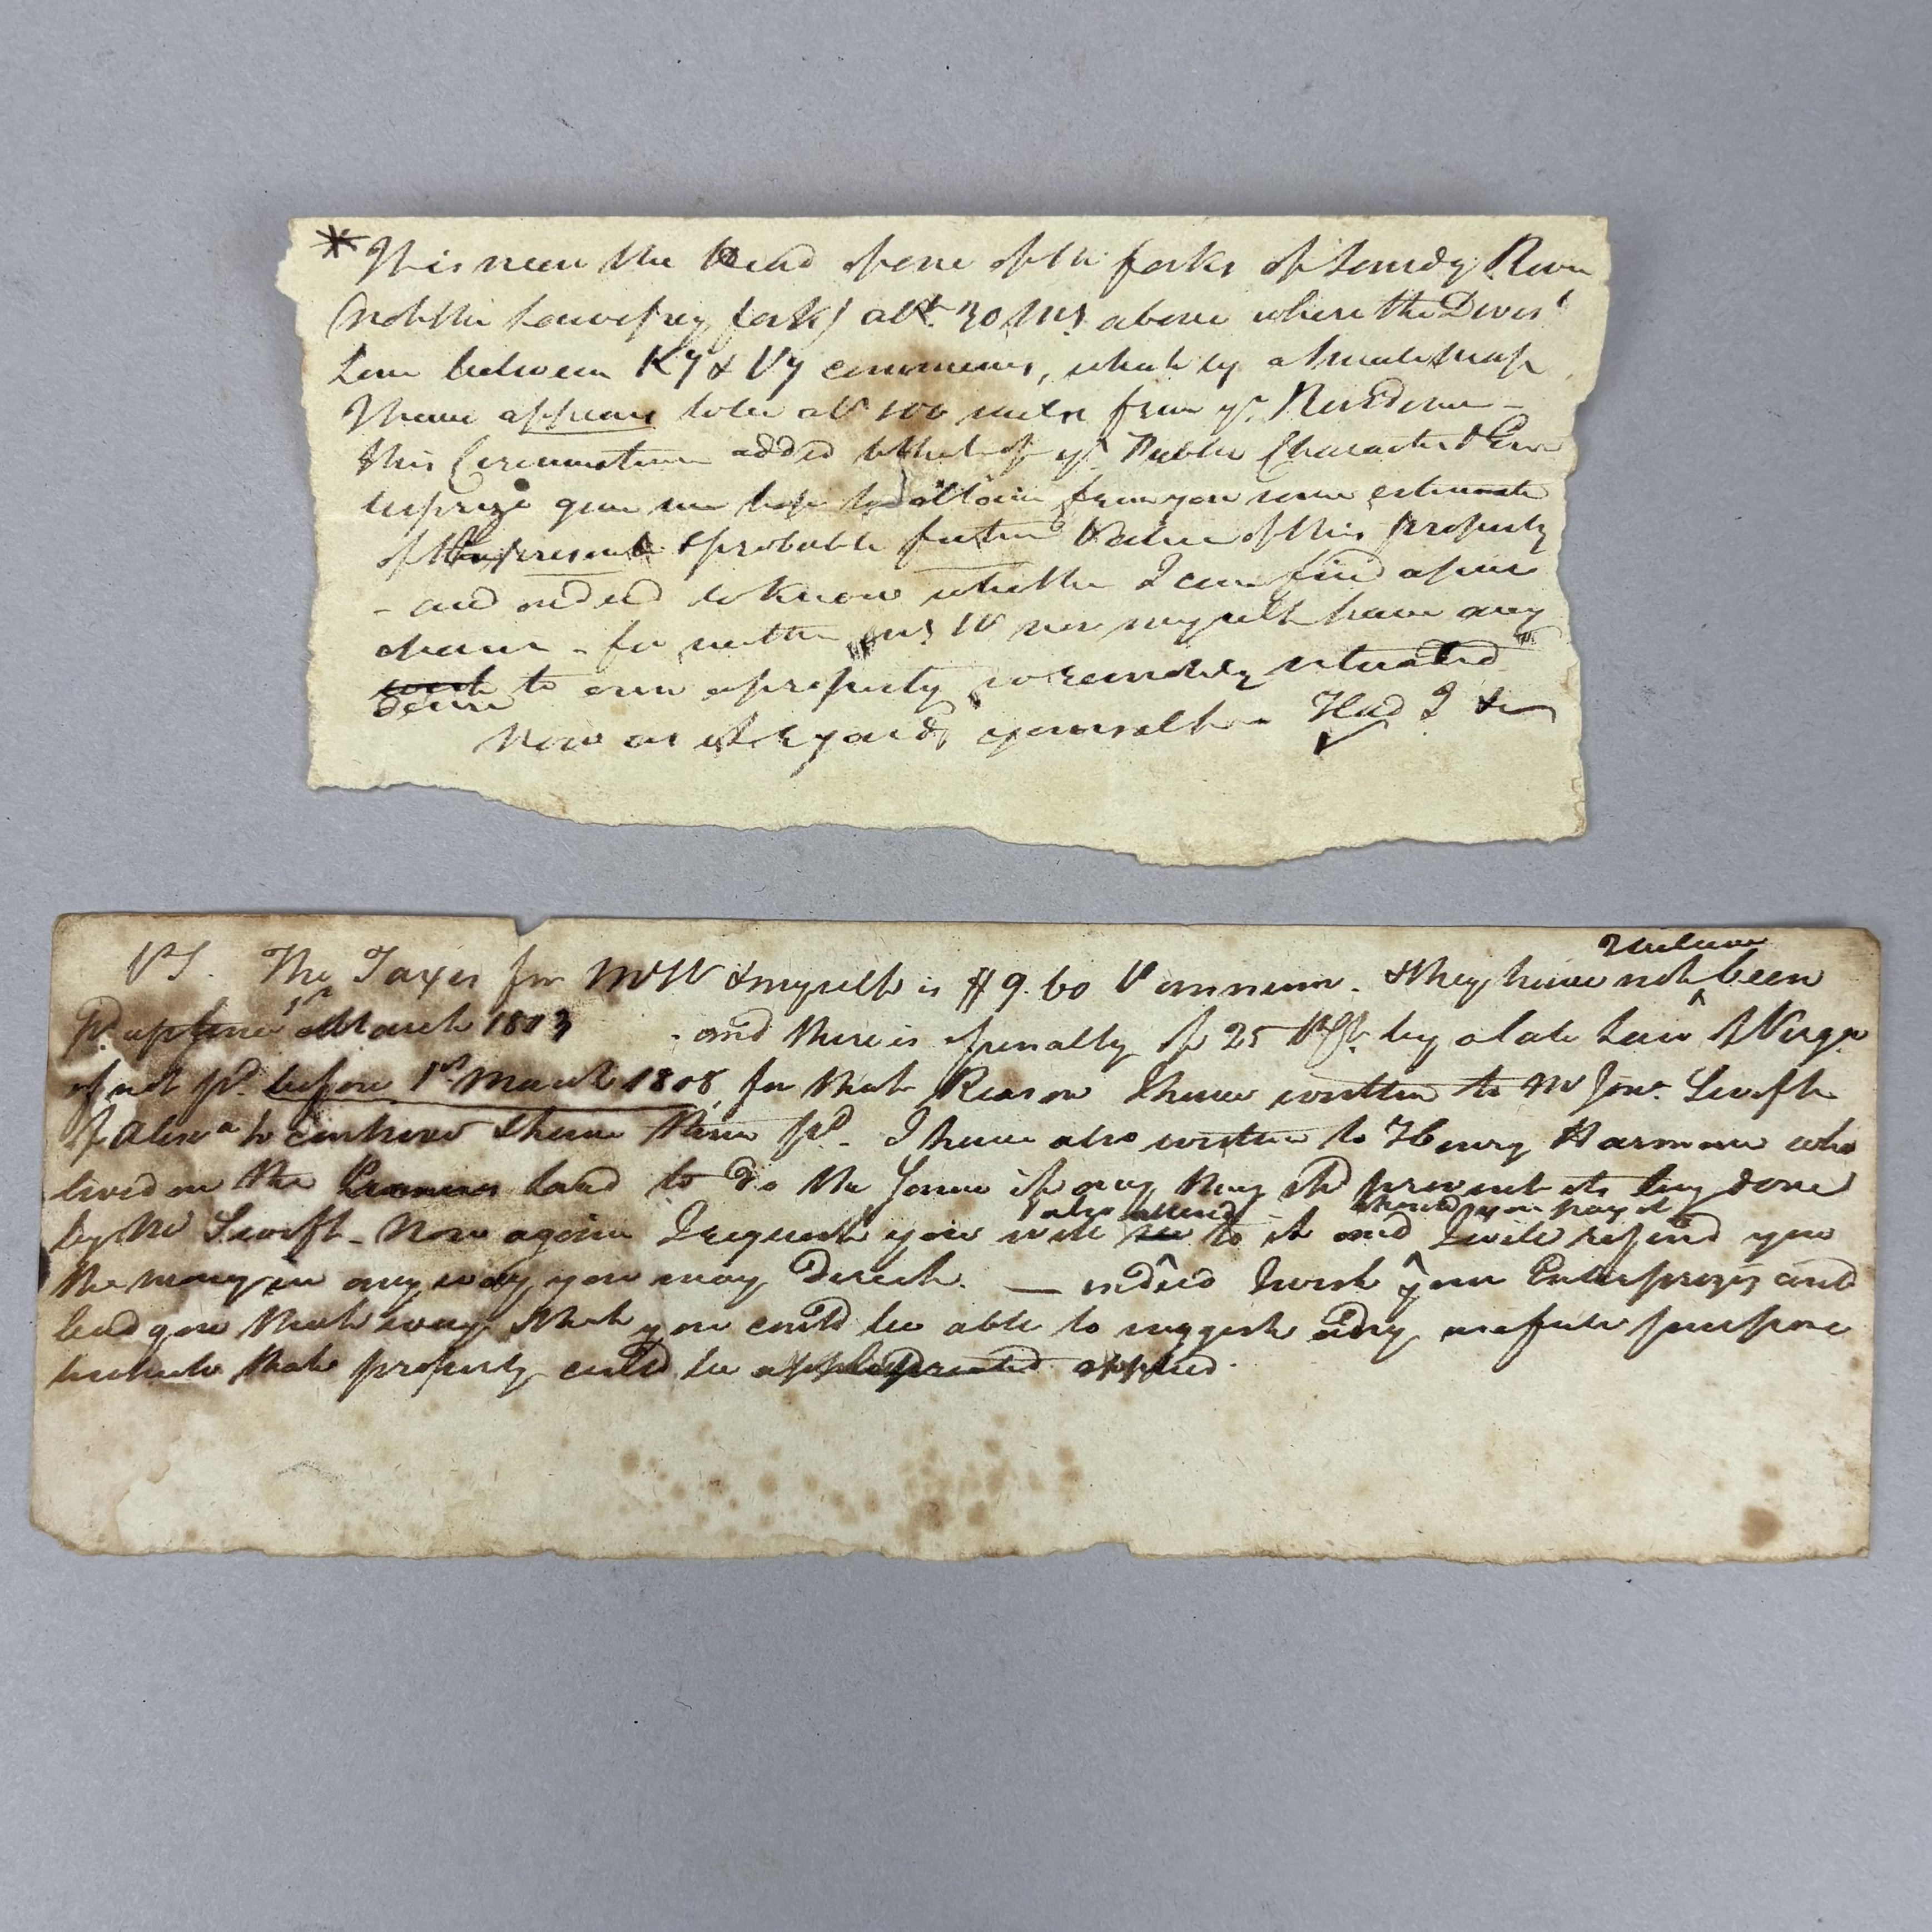 * It is near the Head of one of the forks of Sandy River
(not the fork) abt. 30 Ms. above where the Divis'
Line between Ky & Va commences, which by a map
I have appears to be abt 100 miles from yr. Residence –
this Circumstance added to that of yr. Public Character & En
terprize give me hope to obtain from you some estimate
of the present & probable future Value of this property
- and indeed to know whether I can find a
- for neither Mr W nor myself have any
wish to own a property so remotely situated
desire
Now as it regards yourself – Had I &c
PS. The Taxes for Mr W & myself is $9.60 P annum. & they have not been
I believe
Pd. up since 1st March 1803 - and there is a penalty of 25 PCt. by a late Law of Virga.
if not pd. before 1st March 1808, for that Reason I have written to Mr Jona. Swift
of Alexa to contrive & have them pd. I have also written to Henry Harman who
lived on the land to do the same if any thing shd prevent its being done
by Mr Swift – Now again I request you will see to it and I will refund you
also attend should you pay it
the money in any way you may direct. — indeed I wish your Enterprizes could
lead you that way & that you could be able to suggest any useful purpose
to which that property could be appropriated applied.